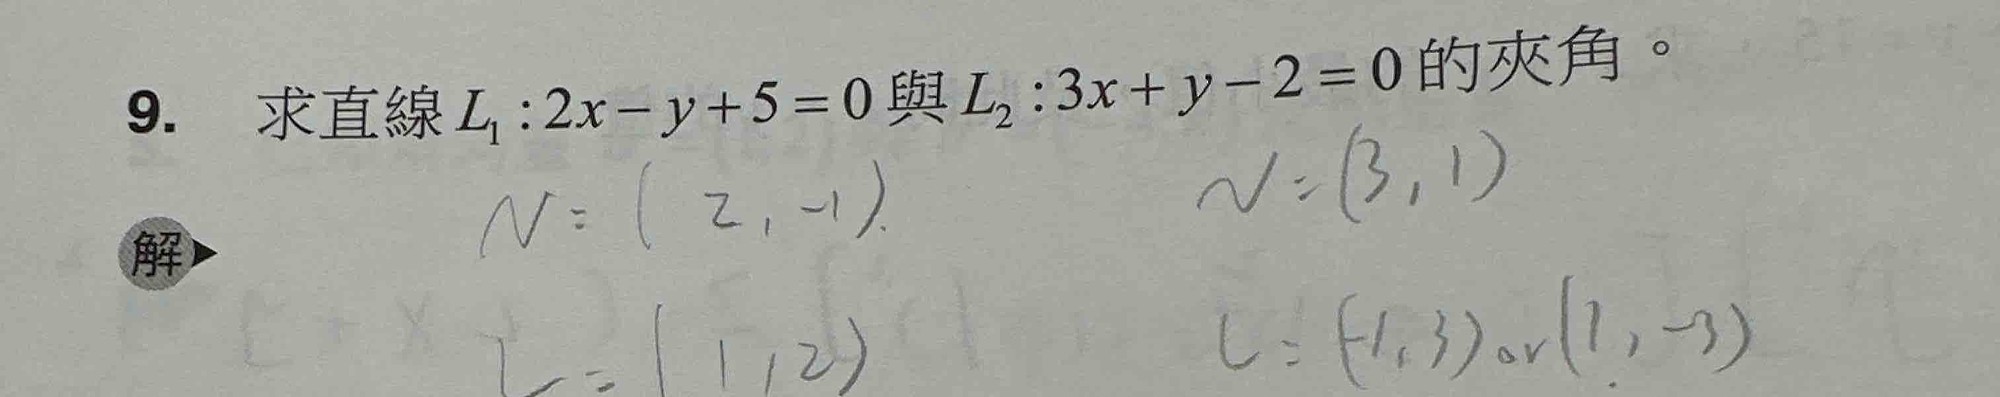 9. 求直線 L₁ : 2x − y + 5 = 0 與 L₂ : 3x + y − 2 = 0 的夾角。
N = ( 2 , −1 ) N = (3 , 1)
解
L = ( 1 , 2 ) L = (−1, 3) or (1 , −3)